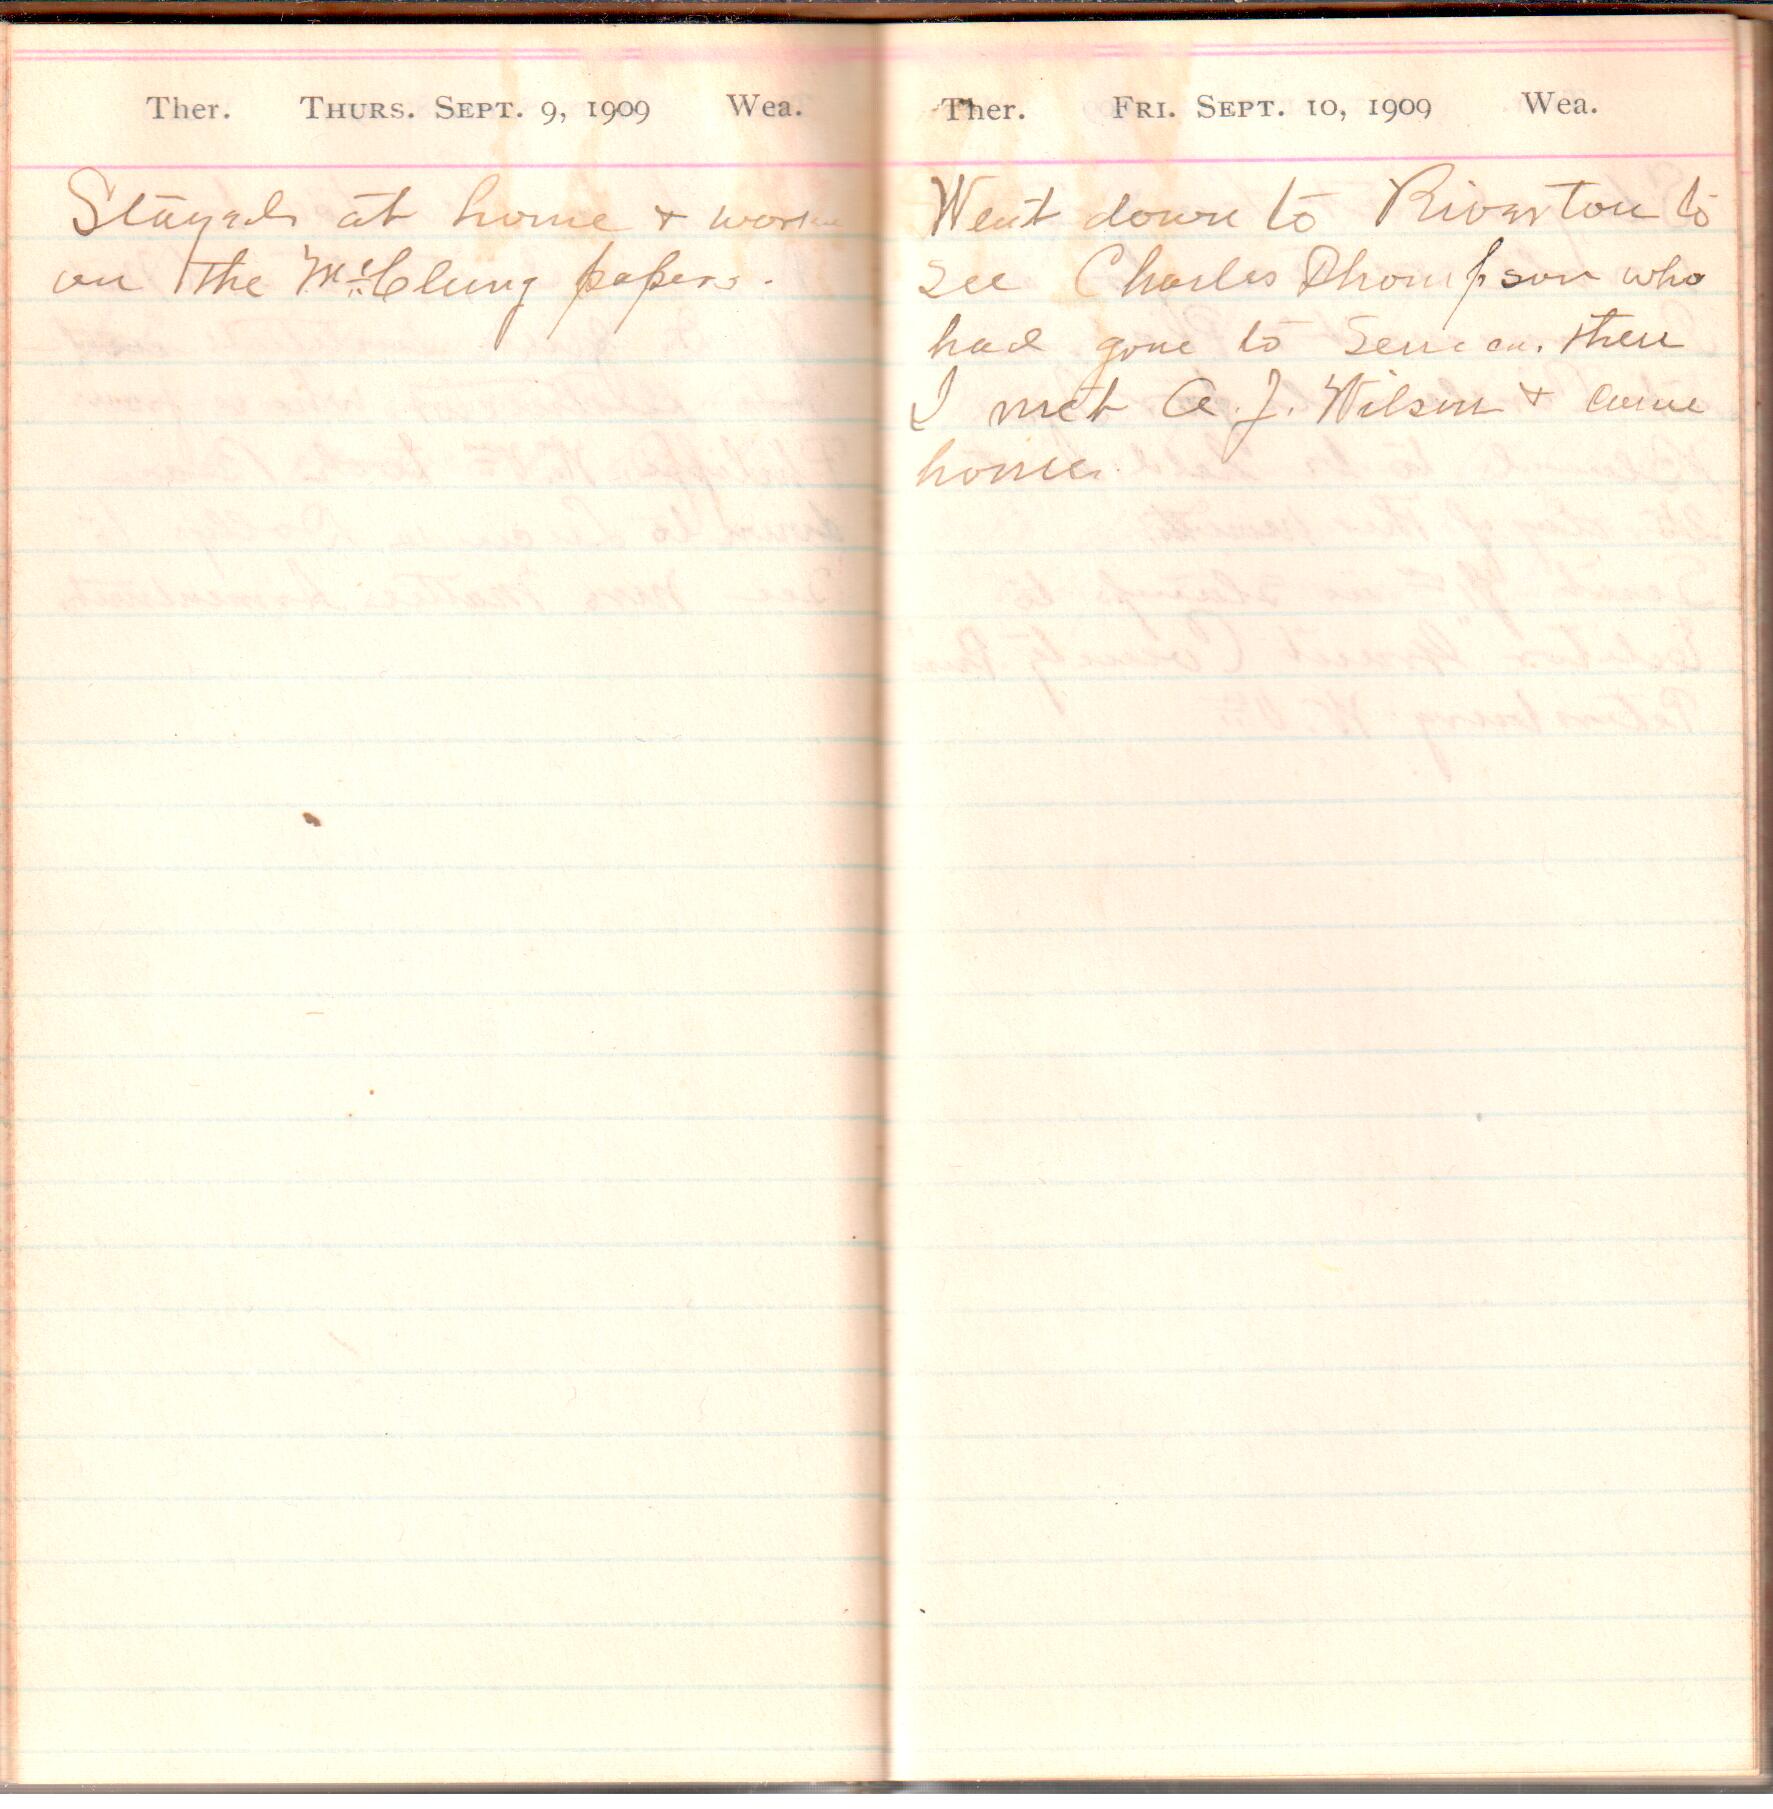 Ther. Thurs. Sept. 9, 1909 Wea.
Stayed at home & worked
on the McClung papers.
Ther. Fri. Sept. 10, 1909 Wea.
Went down to Riverton to
see Charles Thompson who
had gone to Seneca. then
I met A. J. Wilson & came
home.